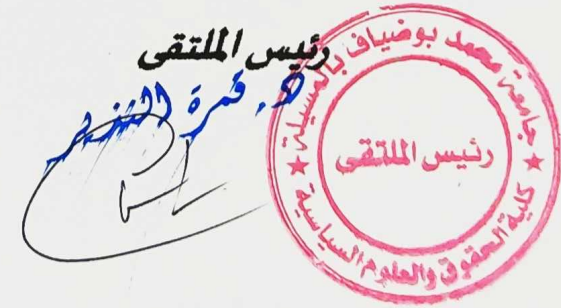 رئيس الملتقى
د. قمرة
جامعة محمد بوضياف بالمسيلة
رئيس الملتقى
كلية الحقوق والعلوم السياسية